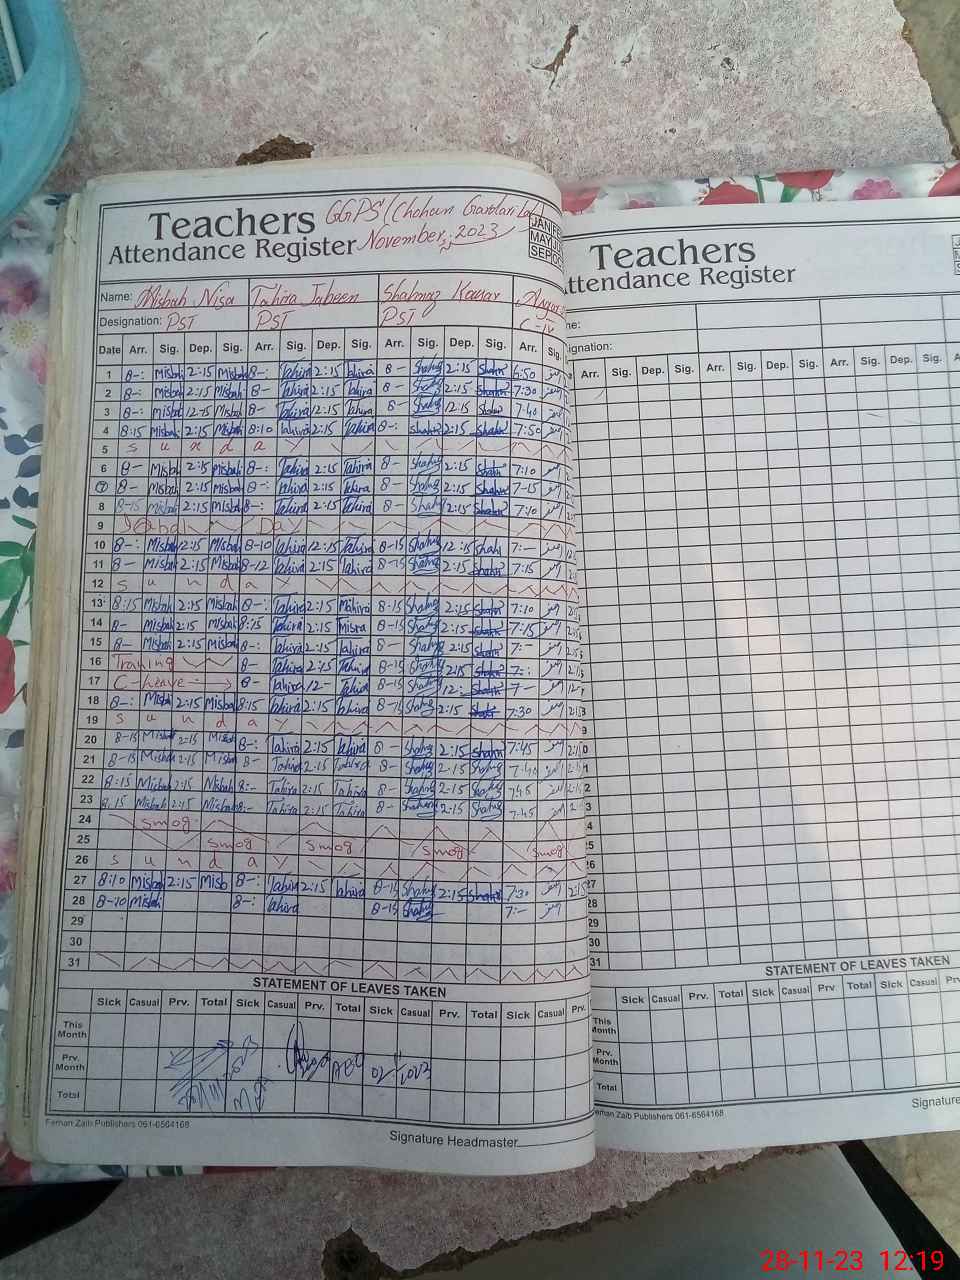 Teachers GGPS (Chohan
Attendance Register November, 2023
Name: Misbah Nisa Tahira Jabeen Shahnaz Kousar
Designation: PST PST PST C-IV
Date Arr. Sig. Dep. Sig. Arr. Sig. Dep. Sig. Arr. Sig. Dep. Sig. Arr. Sig.
1 8-: Misbah 2:15 Misbah 8-: Tahira 2:15 Tahira 8- Shahnaz 2:15 Shahnaz 6:50
2 8-: Misbah 2:15 Misbah 8- Tahira 2:15 Tahira 8- Shahnaz 2:15 Shahnaz 7:30
3 8-: Misbah 12-15 Misbah 8- Tahira 12:15 Tahira 8- Shahnaz 12:15 Shahnaz 7-40
4 8:15 Misbah 2:15 Misbah 8:10 Tahira 2:15 Tahira 8-: Shahnaz 2:15 Shahnaz 7:50
5 S u n d a y
6 8- Misbah 2:15 Misbah 8-: Tahira 2:15 Tahira 8- Shahnaz 2:15 Shahnaz 7:10
7 8- Misbah 2:15 Misbah 8-: Tahira 2:15 Tahira 8- Shahnaz 2:15 Shahnaz 7-15
8 8-15 Misbah 2:15 Misbah 8-: Tahira 2:15 Tahira 8- Shahnaz 2:15 Shahnaz 7:10
9 Iqbal Day
10 8-: Misbah 12:15 Misbah 8-10 Tahira 12:15 Tahira 8-15 Shahnaz 12:15 Shahnaz 7:-
11 8- Misbah 2:15 Misbah 8-12 Tahira 2:15 Tahira 8-15 Shahnaz 2:15 Shahnaz 7:15
12 S u n d a y
13 8:15 Misbah 2:15 Misbah 8-: Tahira 2:15 8-15 Shahnaz 2:15 Shahnaz 7:10
14 8- Misbah 2:15 Misbah 8:15 Tahira 2:15 8-15 Shahnaz 2:15 Shahnaz 7:15
15 8- Misbah 2:15 Misbah 8-: Tahira 2:15 Tahira 8- Shahnaz 2:15 Shahnaz 7:-
16 Training 8- Tahira 2:15 Tahira 8-15 Shahnaz 2:15 Shahnaz 7-:
17 C-Leave 8- Tahira 12- Tahira 8-15 Shahnaz 12: Shahnaz 7-
18 8-: Misbah 2:15 Misbah 8:15 Tahira 2:15 Tahira 8-15 Shahnaz 2:15 Shahnaz 7:30
19 S u n d a y
20 8-15 Misbah 2:15 Misbah 8-: Tahira 2:15 Tahira 8- Shahnaz 2:15 Shahnaz 7:45
21 8-15 Misbah 2:15 Misbah 8- Tahira 2:15 Tahira 8- Shahnaz 2:15 Shahnaz 7-40
22 8:15 Misbah 2:15 Misbah 8:- Tahira 2:15 Tahira 8- Shahnaz 2:15 Shahnaz 745
23 8.15 Misbah 2:15 Misbah 8:- Tahira 2:15 Tahira 8- Shahnaz 2:15 Shahnaz 7-45
24 Smog
25 Smog Smog Smog Smog
26 S u n d a y
27 8:10 Misbah 2:15 Misb 8-: Tahira 2:15 Tahira 8-15 Shahnaz 2:15 Shahnaz 7:30
28 8-10 Misbah 8-: Tahira 8-15 Shahnaz 7:-
29
30
31
STATEMENT OF LEAVES TAKEN
Sick Casual Prv. Total Sick Casual Prv. Total Sick Casual Prv. Total Sick Casual Prv.
This Month
Prv. Month
Total
Feman Zaib Publishers 061-6564168
Signature Headmaster
Teachers
Attendance Register
Arr. Sig. Dep. Sig. Arr. Sig. Dep. Sig. Arr. Sig. Dep. Sig.
STATEMENT OF LEAVES TAKEN
Sick Casual Prv. Total Sick Casual Prv. Total Sick Casual Prv.
This Month
Prv. Month
Total
Feman Zaib Publishers 061-6564168
28-11-23 12:19